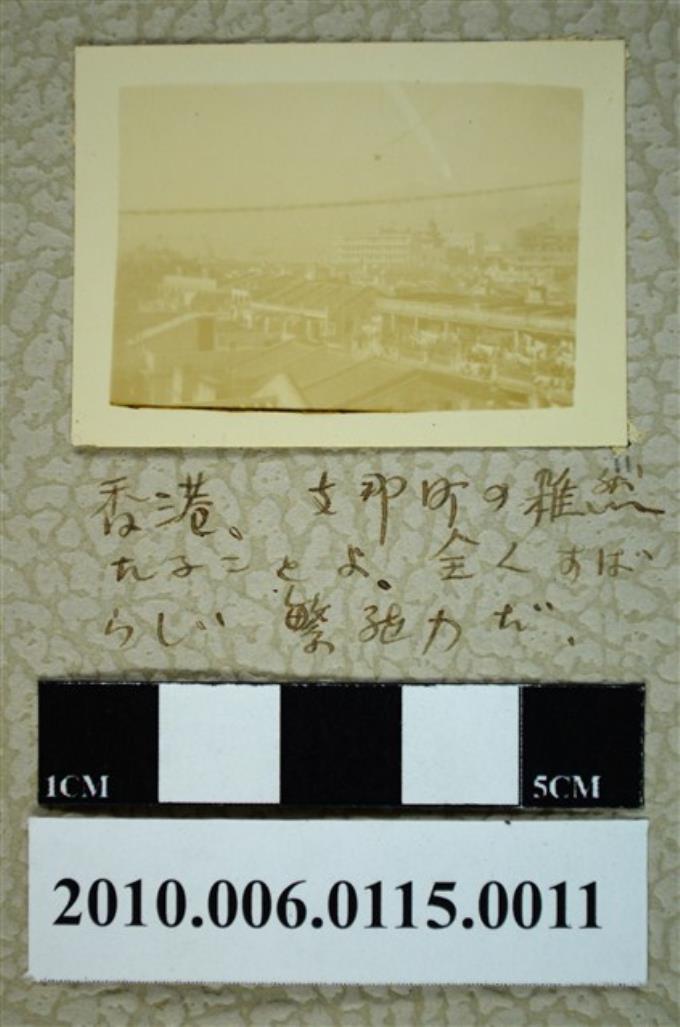 香港。 支那町の雑然
たることよ。全くすば
らしい 繁殖力だ.
1CM
5CM
2010.006.0115.0011